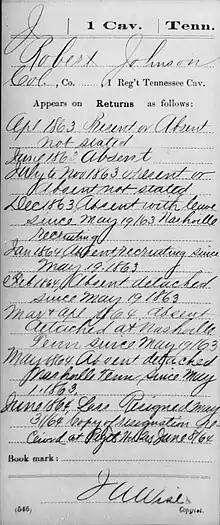 J | 1 Cav. | Tenn.
Robert Johnson
Col., Co. , 1 Reg't Tennessee Cav.
Appears on
Returns as follows:
Apr 1863 Present or Absent
not stated
June 1863 Absent
July to Nov 1863 Present or
Absent not stated
Dec 1863 Absent with leave
since May 19, 63 Nashville
recruiting
Jan 1864 Absent recruiting since
May 19. 1863
Feb 1864 Absent detached
since May 19 1863
Mar & Apl 1864 Absent
detached at Nashville
Tenn since May 19/63
May 1864 Absent detached
Nashville Tenn, since May
1863.
June 1864 Loss Resigned May
31/64 Copy of resignation Re-
ceived at Regt Hd Qrs June 8/64
Book mark:
(546)
Copyist.